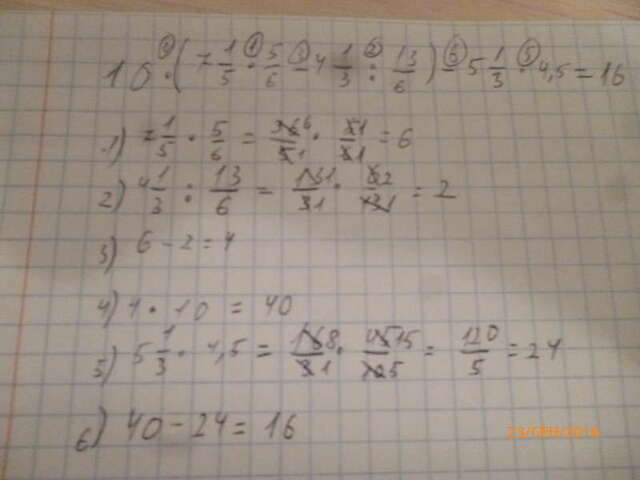 10 · (7 1/5 · 5/6 − 4 1/3 : 13/6) − 5 1/3 · 4,5 = 16
1) 7 1/5 · 5/6 = 36 6/5 1 · 5 1/6 1 = 6
2) 4 1/3 : 13/6 = 13 1/3 1 · 6 2/13 1 = 2
3) 6 − 2 = 4
4) 4 · 10 = 40
5) 5 1/3 · 4,5 = 16 8/3 1 · 45 15/10 5 = 120/5 = 24
6) 40 − 24 = 16